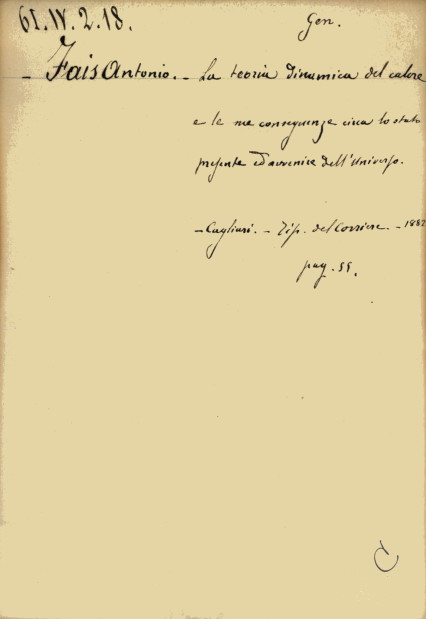 61.IV.2.18.
Gen.
- Fais Antonio. - La teoria dinamica del calore
e le sue conseguenze circa lo stato
presente ed avvenire dell'Universo.
- Cagliari. - Tip. del Corriere. - 1882
pag. 55.
C